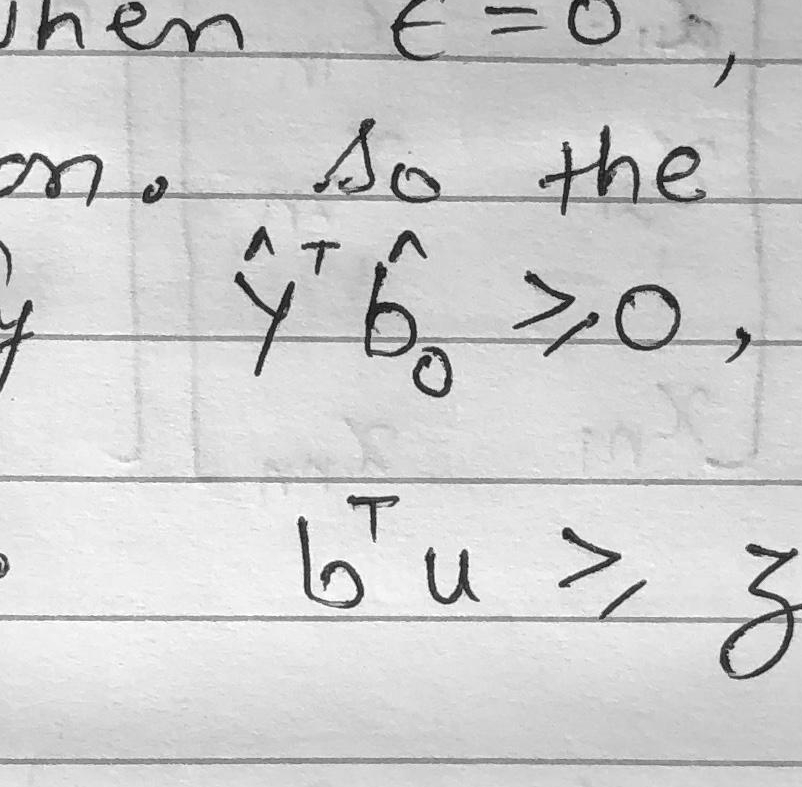 when ϵ = 0,
on. So the
y ŷᵀ b̂₀ ⩾ 0,
bᵀu ⩾ z